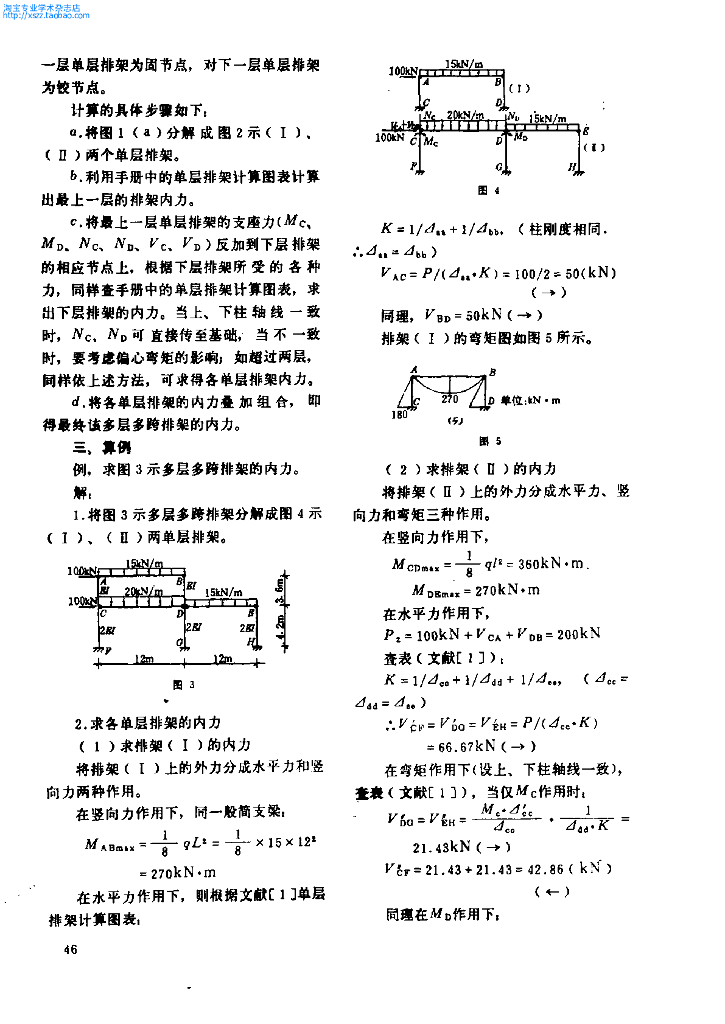 淘宝专业学术杂志店
http://xszz.taobao.com
一层单层排架为固节点，对下一层单层排架
为铰节点。
计算的具体步骤如下：
a.将图1（a）分解成图2示（Ⅰ）、
（Ⅱ）两个单层排架。
b.利用手册中的单层排架计算图表计算
出最上一层的排架内力。
c.将最上一层单层排架的支座力(Mc、
MD、NC、ND、VC、VD)反加到下层排架
的相应节点上，根据下层排架所受的各种
力，同样查手册中的单层排架计算图表，求
出下层排架的内力。当上、下柱轴线一致
时，NC、ND可直接传至基础，当不一致
时，要考虑偏心弯矩的影响；如超过两层，
同样依上述方法，可求得各单层排架内力。
d.将各单层排架的内力叠加组合，即
得最终该多层多跨排架的内力。
三、算例
例，求图3示多层多跨排架的内力。
解：
1.将图3示多层多跨排架分解成图4示
（Ⅰ）、（Ⅱ）两单层排架。
15kN/m
100kN
A B
EI EI
20kN/m 15kN/m
100kN
C D E
2EI 2EI 2EI
F G H
3.6m
4.2m
12m 12m
图 3
2.求各单层排架的内力
（1）求排架（Ⅰ）的内力
将排架（Ⅰ）上的外力分成水平力和竖
向力两种作用。
在竖向力作用下，同一般简支梁：
MABmax = 1/8 qL² = 1/8 ×15×12²
=270kN·m
在水平力作用下，则根据文献[1]单层
排架计算图表：
46
15kN/m
100kN
A B
(Ⅰ)
C D
Nc 20kN/m ND 15kN/m
100kN C Mc D MD E
(Ⅱ)
F G H
图 4
K=1/Δaa+1/Δbb，（柱刚度相同，
∴Δaa=Δbb）
VAC=P/(Δaa·K)=100/2=50(kN)
（→）
同理，VBD=50kN（→）
排架（Ⅰ）的弯矩图如图5所示。
A B
C 270 D 单位:kN·m
180
图 5
（2）求排架（Ⅱ）的内力
将排架（Ⅱ）上的外力分成水平力、竖
向力和弯矩三种作用。
在竖向力作用下，
MCDmax = 1/8 ql² = 360kN·m.
MDEmax = 270kN·m
在水平力作用下，
P2=100kN+VCA+VDB=200kN
查表（文献[1]）：
K=1/Δcc+1/Δdd+1/Δee，（Δcc=
Δdd=Δee）
∴V′CF=V′DG=V′EH=P/(Δcc·K)
=66.67kN（→）
在弯矩作用下(设上、下柱轴线一致)，
查表（文献[1]），当仅Mc作用时：
V″DG=V″EH= Mc·Δ′cc/Δcc · 1/Δdd·K =
21.43kN（→）
V″CF=21.43+21.43=42.86(kN)
（←）
同理在MD作用下：